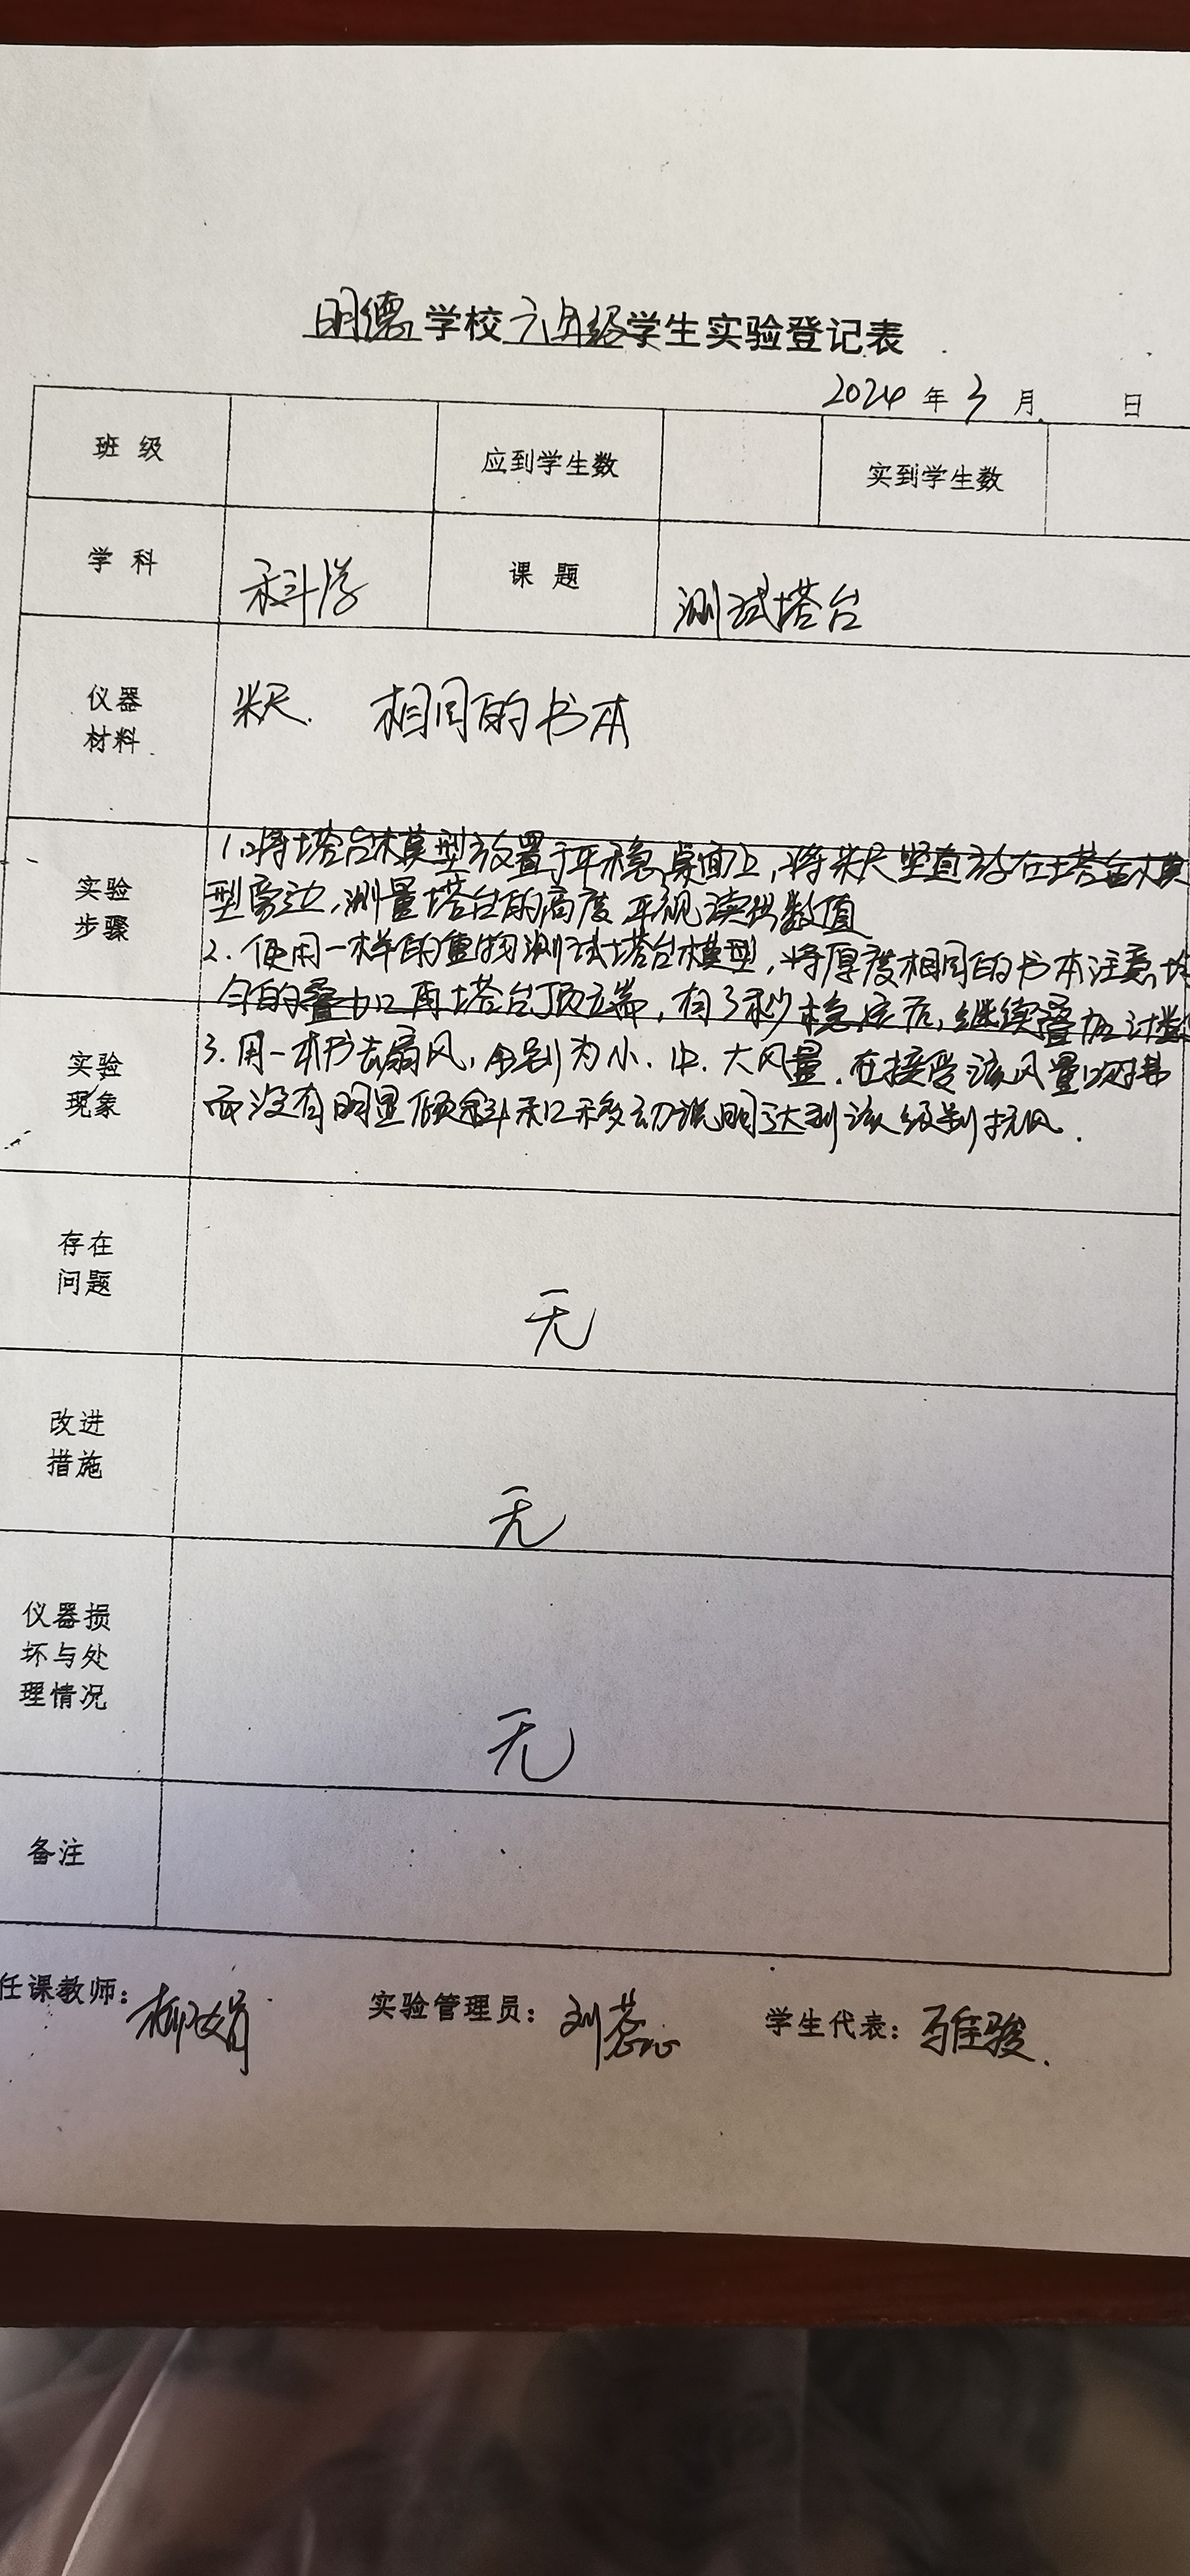 明德学校六年级学生实验登记表
2024年3月 日
班级 应到学生数 实到学生数
学科 科学 课题 测试塔台
仪器材料 米尺. 相同的书本
实验步骤
1.将塔台模型放置于平稳桌面上,将米尺竖直放在塔台模
型旁边,测量塔台的高度 平视读出数值
2. 使用一样的重物测试塔台模型,将厚度相同的书本注意均
匀的叠加在塔台顶端,有3秒稳定后,继续叠加计数
实验现象
3. 用一本书去扇风,分别为小、中、大风量.在接受该风量吹拂
而没有明显倾斜和移动说明达到该级别抗风.
存在问题 无
改进措施 无
仪器损坏与处理情况 无
备注
任课教师: 实验管理员: 刘蕊 学生代表: 骏.